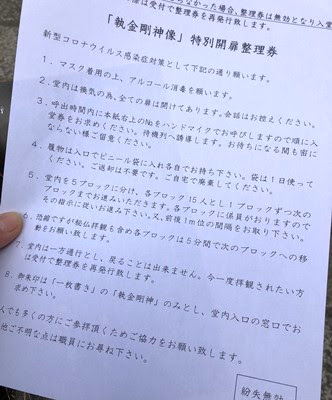 らなかった場合、整理券は無効となり入堂
は受付で整理券を再発行致します。
「執金剛神像」特別開扉整理券
新型コロナウイルス感染症対策として下記の通り願います。
1．マスク着用の上、アルコール消毒を願います。
2．堂内は換気の為、全ての扉は開けてあります。会話はお控えください。
3．呼出時間内に本紙右上の№をハンドマイクでお呼びしますので順に入
堂券をお求めください。待機列へ誘導します。お待ちになる間も密に
ならない様ご留意ください。
4．履物は入口でビニール袋に入れ各自でお持ち下さい。袋は1日使って
ください。ご返却は不要です。ご自宅で廃棄してください。
5．堂内を5ブロックに分け、各ブロック15人として1ブロックずつ次の
ブロックまでお進みいただきます。各ブロックに係員がおりますので
その指示に従いお進み下さい。又、前後1mの間隔をお取り下さい。
6．恐縮ですが秘仏拝観も含め各ブロックは5分間で次のブロックへの移
動をお願い致します。
7．堂内は一方通行とし、戻ることは出来ません。今一度拝観されたい方
は受付で整理券を再発行致します。
8．御朱印は「一枚書き」の「執金剛神」のみとし、堂内入口の窓口でお
求め下さい。
人でも多くの方にご参拝頂くためご協力をお願い致します。
他ご不明な点は職員にお尋ね下さい。
紛失無効